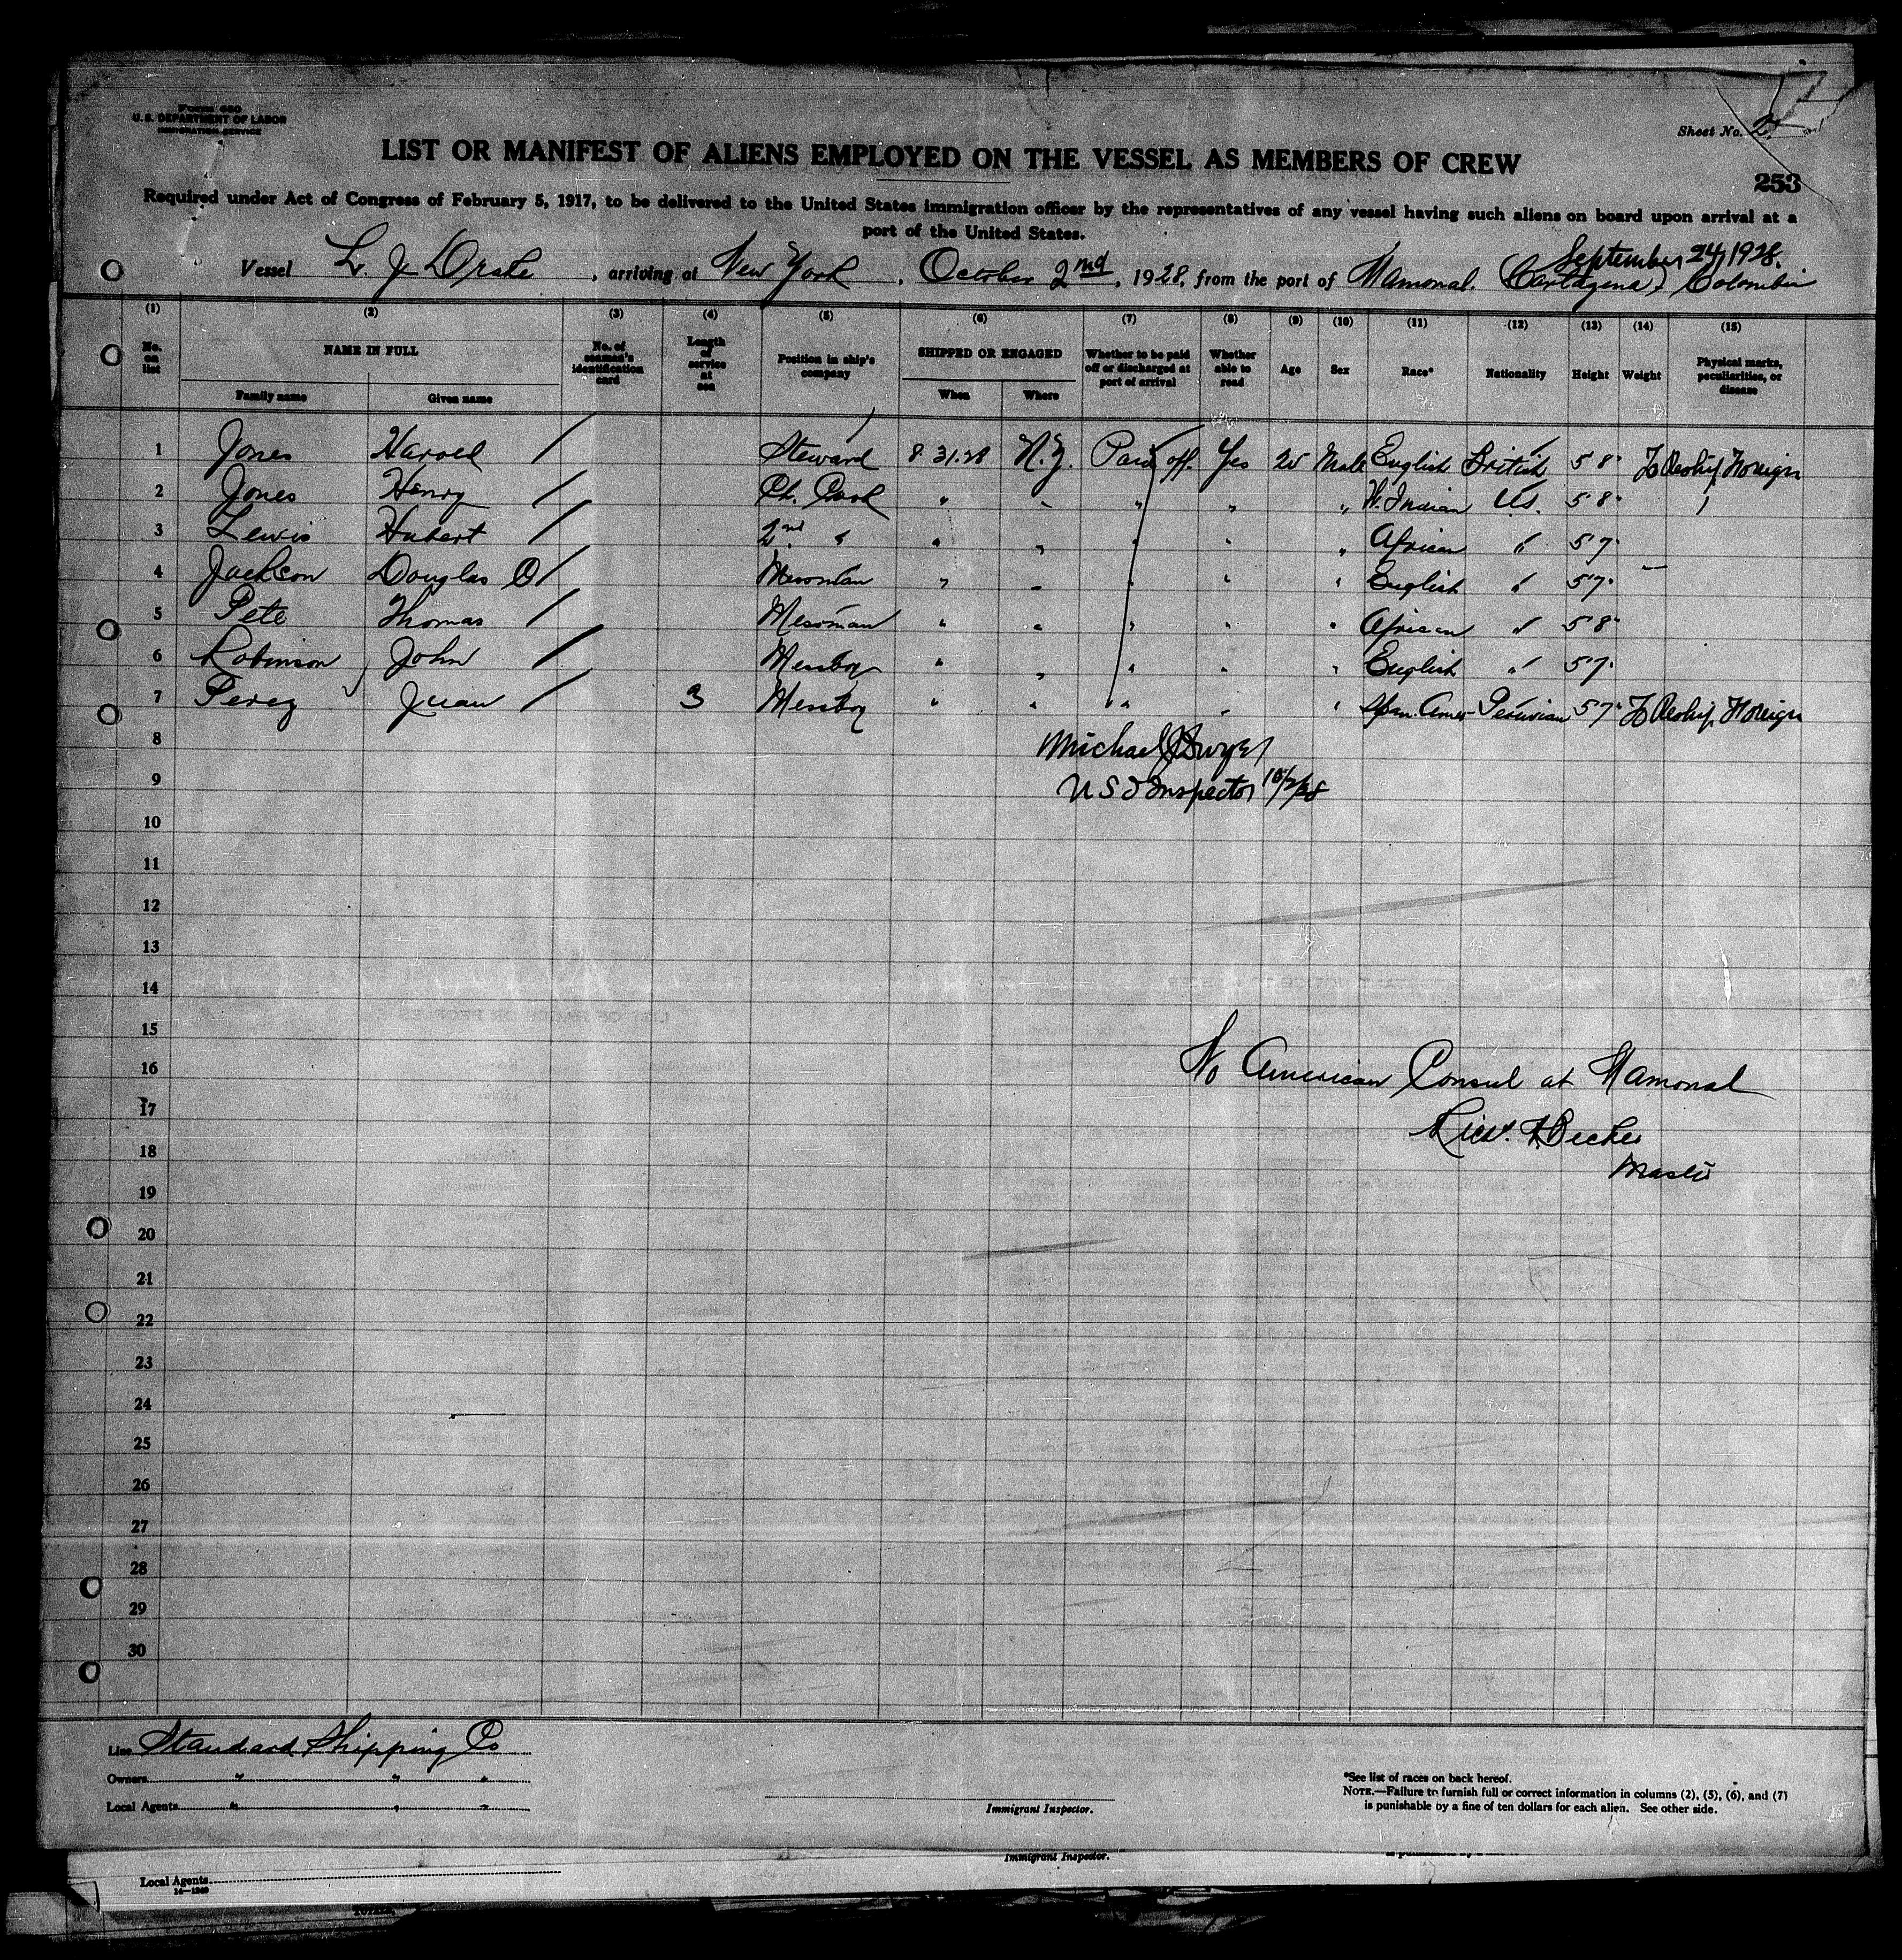 Form 680
U. S. DEPARTMENT OF LABOR
IMMIGRATION SERVICE
Sheet No. 2
LIST OR MANIFEST OF ALIENS EMPLOYED ON THE VESSEL AS MEMBERS OF CREW
253
Required under Act of Congress of February 5, 1917, to be delivered to the United States immigration officer by the representatives of any vessel having such aliens on board upon arrival at a
port of the United States.
September 24, 1928.
Vessel L. J. Drake, arriving at New York, October 2nd, 1928, from the port of Mamonal. (Cartagena) Colombia
(1) (2) (3) (4) (5) (6) (7) (8) (9) (10) (11) (12) (13) (14) (15)
No. on list NAME IN FULL No. of seaman's identification card Length of service at sea Position in ship's company SHIPPED OR ENGAGED Whether to be paid off or discharged at port of arrival Whether able to read Age Sex Race* Nationality Height Weight Physical marks, peculiarities, or disease
Family name Given name When Where
1 Jones Harold / Steward 8 31.28 N.Y. Paid off. Yes Male English British 5 8" To Reship Foreign
2 Jones Henry / Ch. Cook " " " " " W. Indian U.S. 5 8"
3 Lewis Hubert / 2nd " " " " " " African " 5 7"
4 Jackson Douglas O / Messman " " " " " English " 5 7"
5 Pete Thomas / Messman " " " " " African " 5 8"
6 Robinson John / Messboy " " " " " English " 5 7"
7 Perez Juan / 3 Messboy " " " " " Span. Amer Peruvian 5 7" To Reship Foreign
8 Michael J Dwyer
9 U S I Inspector 10/2/28
10
11
12
13
14
15
16 No American Consul at Mamonal
17
18 Master
19
20
21
22
23
24
25
26
27
28
29
30
Line Standard Shipping Co
Owners " " "
Local Agents " " "
Immigrant Inspector.
*See list of races on back hereof.
NOTE.—Failure to furnish full or correct information in columns (2), (5), (6), and (7)
is punishable by a fine of ten dollars for each alien. See other side.
Immigrant Inspector.
Local Agents
14—1240